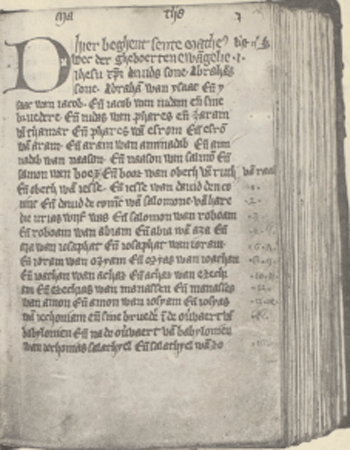 ma the
hier beghent sente matheus
der gheboerten ewãgelie
ihesu xp̃i dauids sone Abrahãs
sone. Abrahã wan ysaac Eñ y
saac wan iacob. Eñ iacob wan iudam eñ sine
bruedre. Eñ iudas wan phares eñ zaram
vã thamar Eñ phares wã esrom Eñ esrõ
wã aram. Eñ aram wan aminadab Eñ ami
nadab wan naason. Eñ naason wan salmõ Eñ
salmon wan boez Eñ booz wan obeth vã ruth
Eñ obeth wã iesse. Eñ iesse wan dauid den co
ninc Eñ dauid de coninc wan salomone vã dare
die urias wijf was Eñ salomon wan roboam
Eñ roboam wan abiam Eñ abia wan aza Eñ
aza wan iosephat Eñ iosaphat wan ioram
Eñ ioram wan ozyam Eñ ozyas wan ioathan
Eñ ioathan wan achaz Eñ achaz wan ezechi
am Eñ ezechyas wan manassen Eñ manasses
wan amon Eñ amon wan iosyam Eñ iosyas
wã iechoniam eñ sine bruedre ĩ de
babylonien Eñ na de vã babylonien
wan iechonias salathyel Eñ salathyel wã